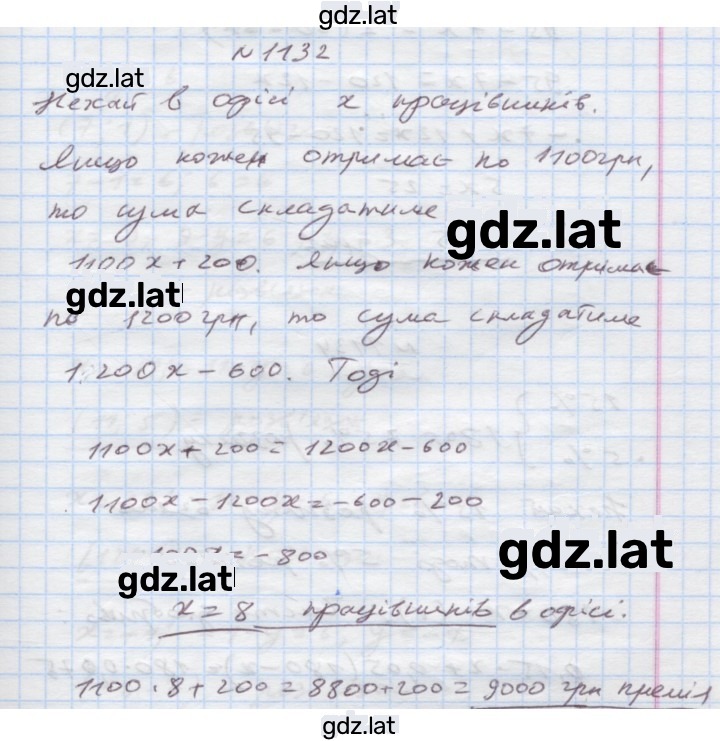 gdz.lat
№1132
gdz.lat
Нехай в офісі x працівників.
Якщо кожен отримає по 1100грн,
то сума складатиме
gdz.lat
1100x + 200. Якщо кожен отримає
gdz.lat
по 1200грн, то сума складатиме
1200x - 600. Тоді
1100x + 200 = 1200x - 600
1100x - 1200x = -600 - 200
gdz.lat
= -800
gdz.lat
x = 8 працівників в офісі.
1100 · 8 + 200 = 8800 + 200 = 9000 грн премія
gdz.lat